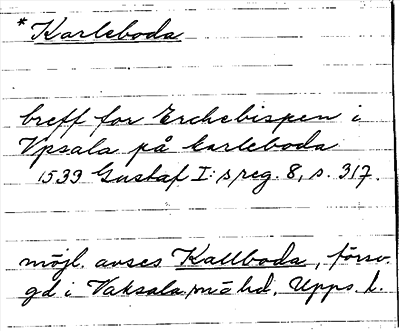 * Karleboda
breff for Erchebispen i
Vpsala på karleboda
1539 Gustaf I:s reg. 8, s. 317.
möjl. avses Kallboda, försv.
gd i Vaksala sn o hd, Upps. l.